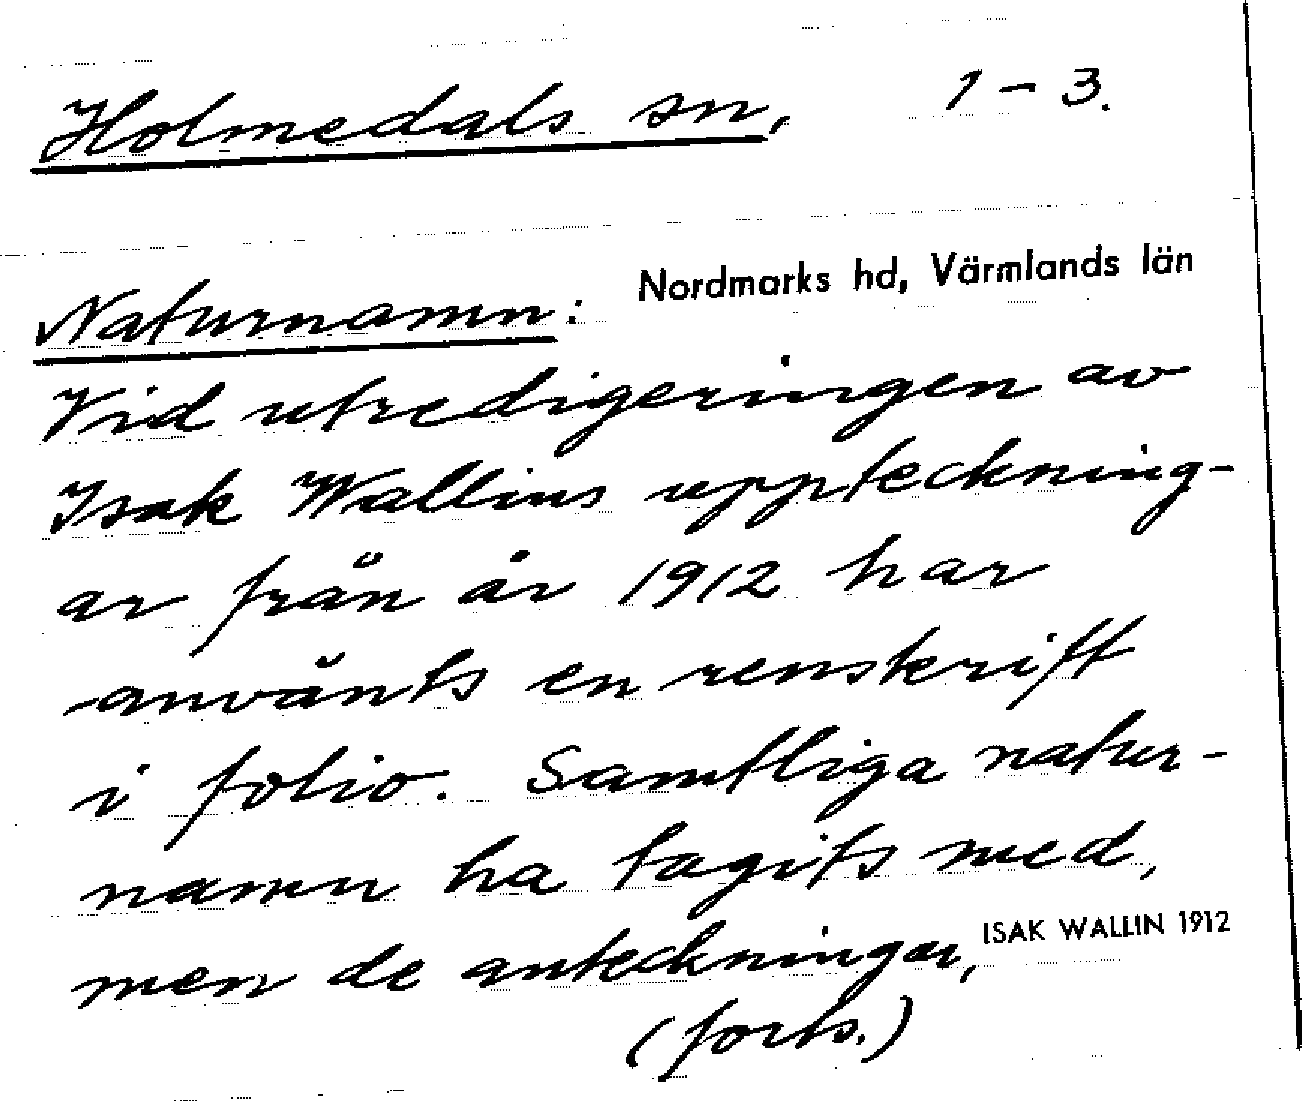 Holmedals sn, 1 - 3.
Nordmarks hd, Värmlands län
Naturnamn:
Vid utredigeringen av
Isak Wallins uppteckning-
ar från år 1912 har
använts en renskrift
i folio. Samtliga natur-
namn ha tagits med,
men de anteckningar,
ISAK WALLIN 1912
(forts.)